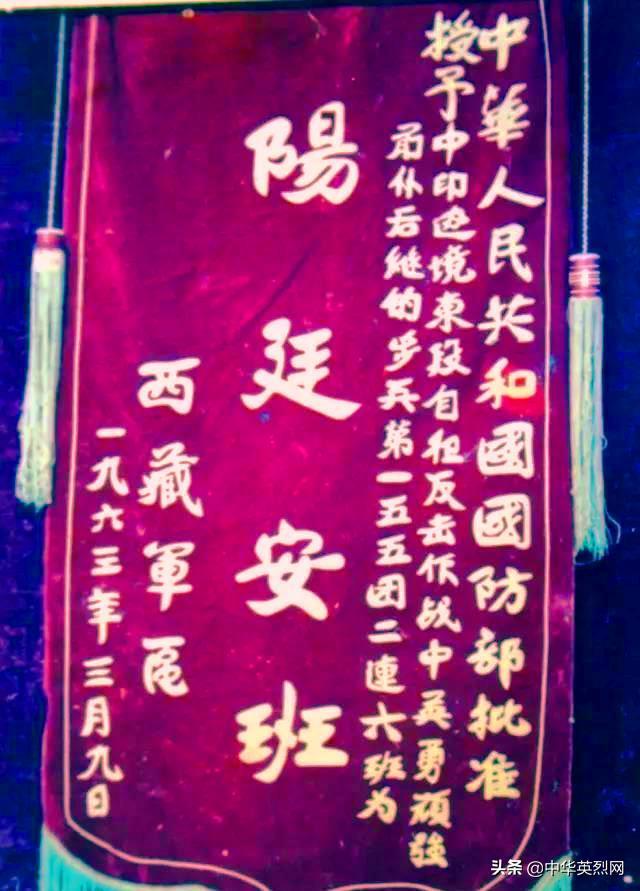 中華人民共和國國防部批准
授予中印边境東段自卫反击作战中英勇頑強
前仆后继的步兵第一五五团二連六班为
陽廷安班
西藏軍区
一九六三年三月九日
头条 @中华英烈网